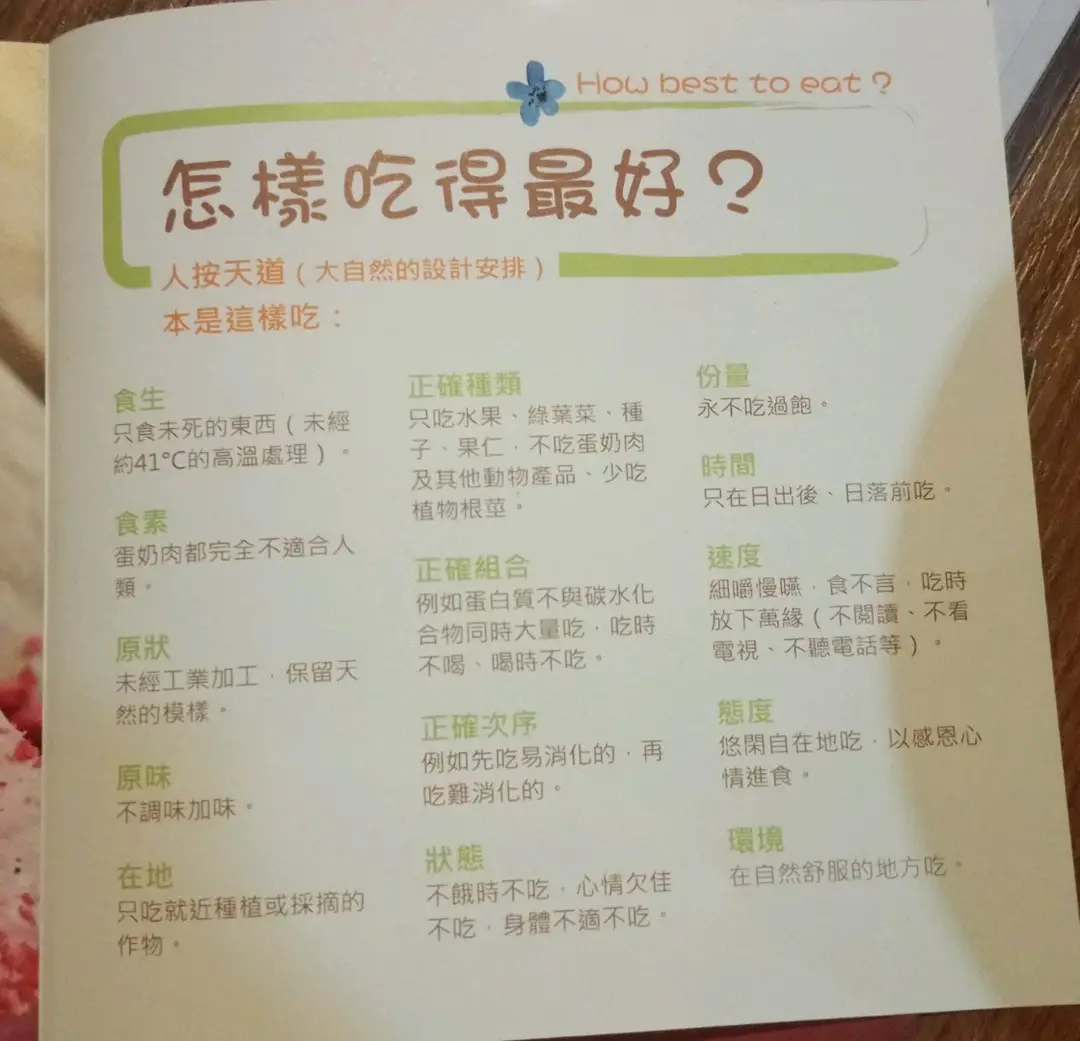 How best to eat ?
怎樣吃得最好？
人按天道（大自然的設計安排）
本是這樣吃：
食生
只食未死的東西（未經
約41°C的高溫處理）。
食素
蛋奶肉都完全不適合人
類。
原狀
未經工業加工，保留天
然的模樣。
原味
不調味加味。
在地
只吃就近種植或採摘的
作物。
正確種類
只吃水果、綠葉菜、種
子、果仁，不吃蛋奶肉
及其他動物產品、少吃
植物根莖。
正確組合
例如蛋白質不與碳水化
合物同時大量吃，吃時
不喝、喝時不吃。
正確次序
例如先吃易消化的，再
吃難消化的。
狀態
不餓時不吃，心情欠佳
不吃，身體不適不吃。
份量
永不吃過飽。
時間
只在日出後、日落前吃。
速度
細嚼慢嚥，食不言，吃時
放下萬緣（不閱讀、不看
電視、不聽電話等）。
態度
悠閑自在地吃，以感恩心
情進食。
環境
在自然舒服的地方吃。